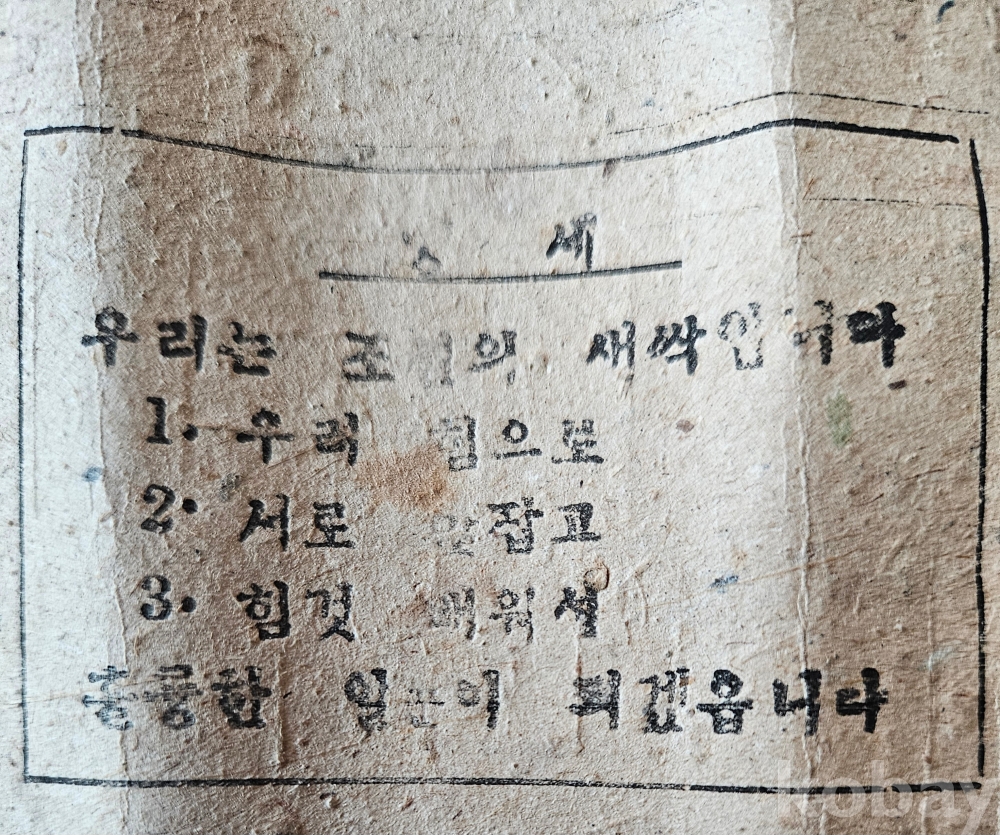 세
우리는 조선의 새싹입니다
1. 우리 힘으로
2. 서로 잡고
3. 힘것 배워서
훌륭한 일군이 되겠음니다
kobay